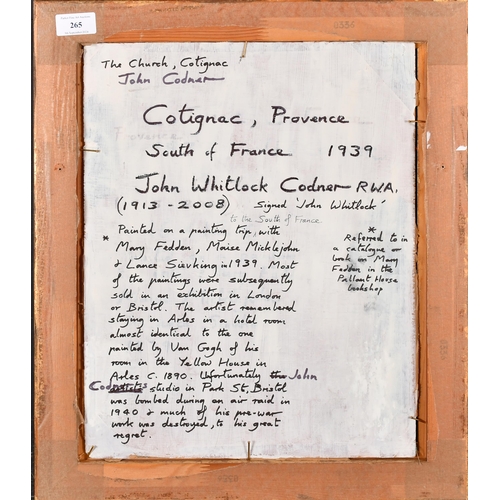 265
The Church, Cotignac
John Codner
Cotignac, Provence
South of France 1939
John Whitlock Codner RWA.
(1913 - 2008) Signed 'John Whitlock'
to the South of France
* Painted on a painting trip, with
Mary Fedden, Maise Micklejohn
& Lance Sieveking in 1939. Most
of the paintings were subsequently
sold in an exhibition in London
or Bristol. The artist remembered
staying in Arles in a hotel room
almost identical to the one
painted by Van Gogh of his
room in the Yellow House in
Arles C. 1890. Unfortunately the John
Codner's studio in Park St, Bristol
was bombed during an air raid in
1940 & much of his pre-war
work was destroyed, to his great
regret.
*
Referred to in
a catalogue or
book on Mary
Fedden in the
Pallant House
bookshop